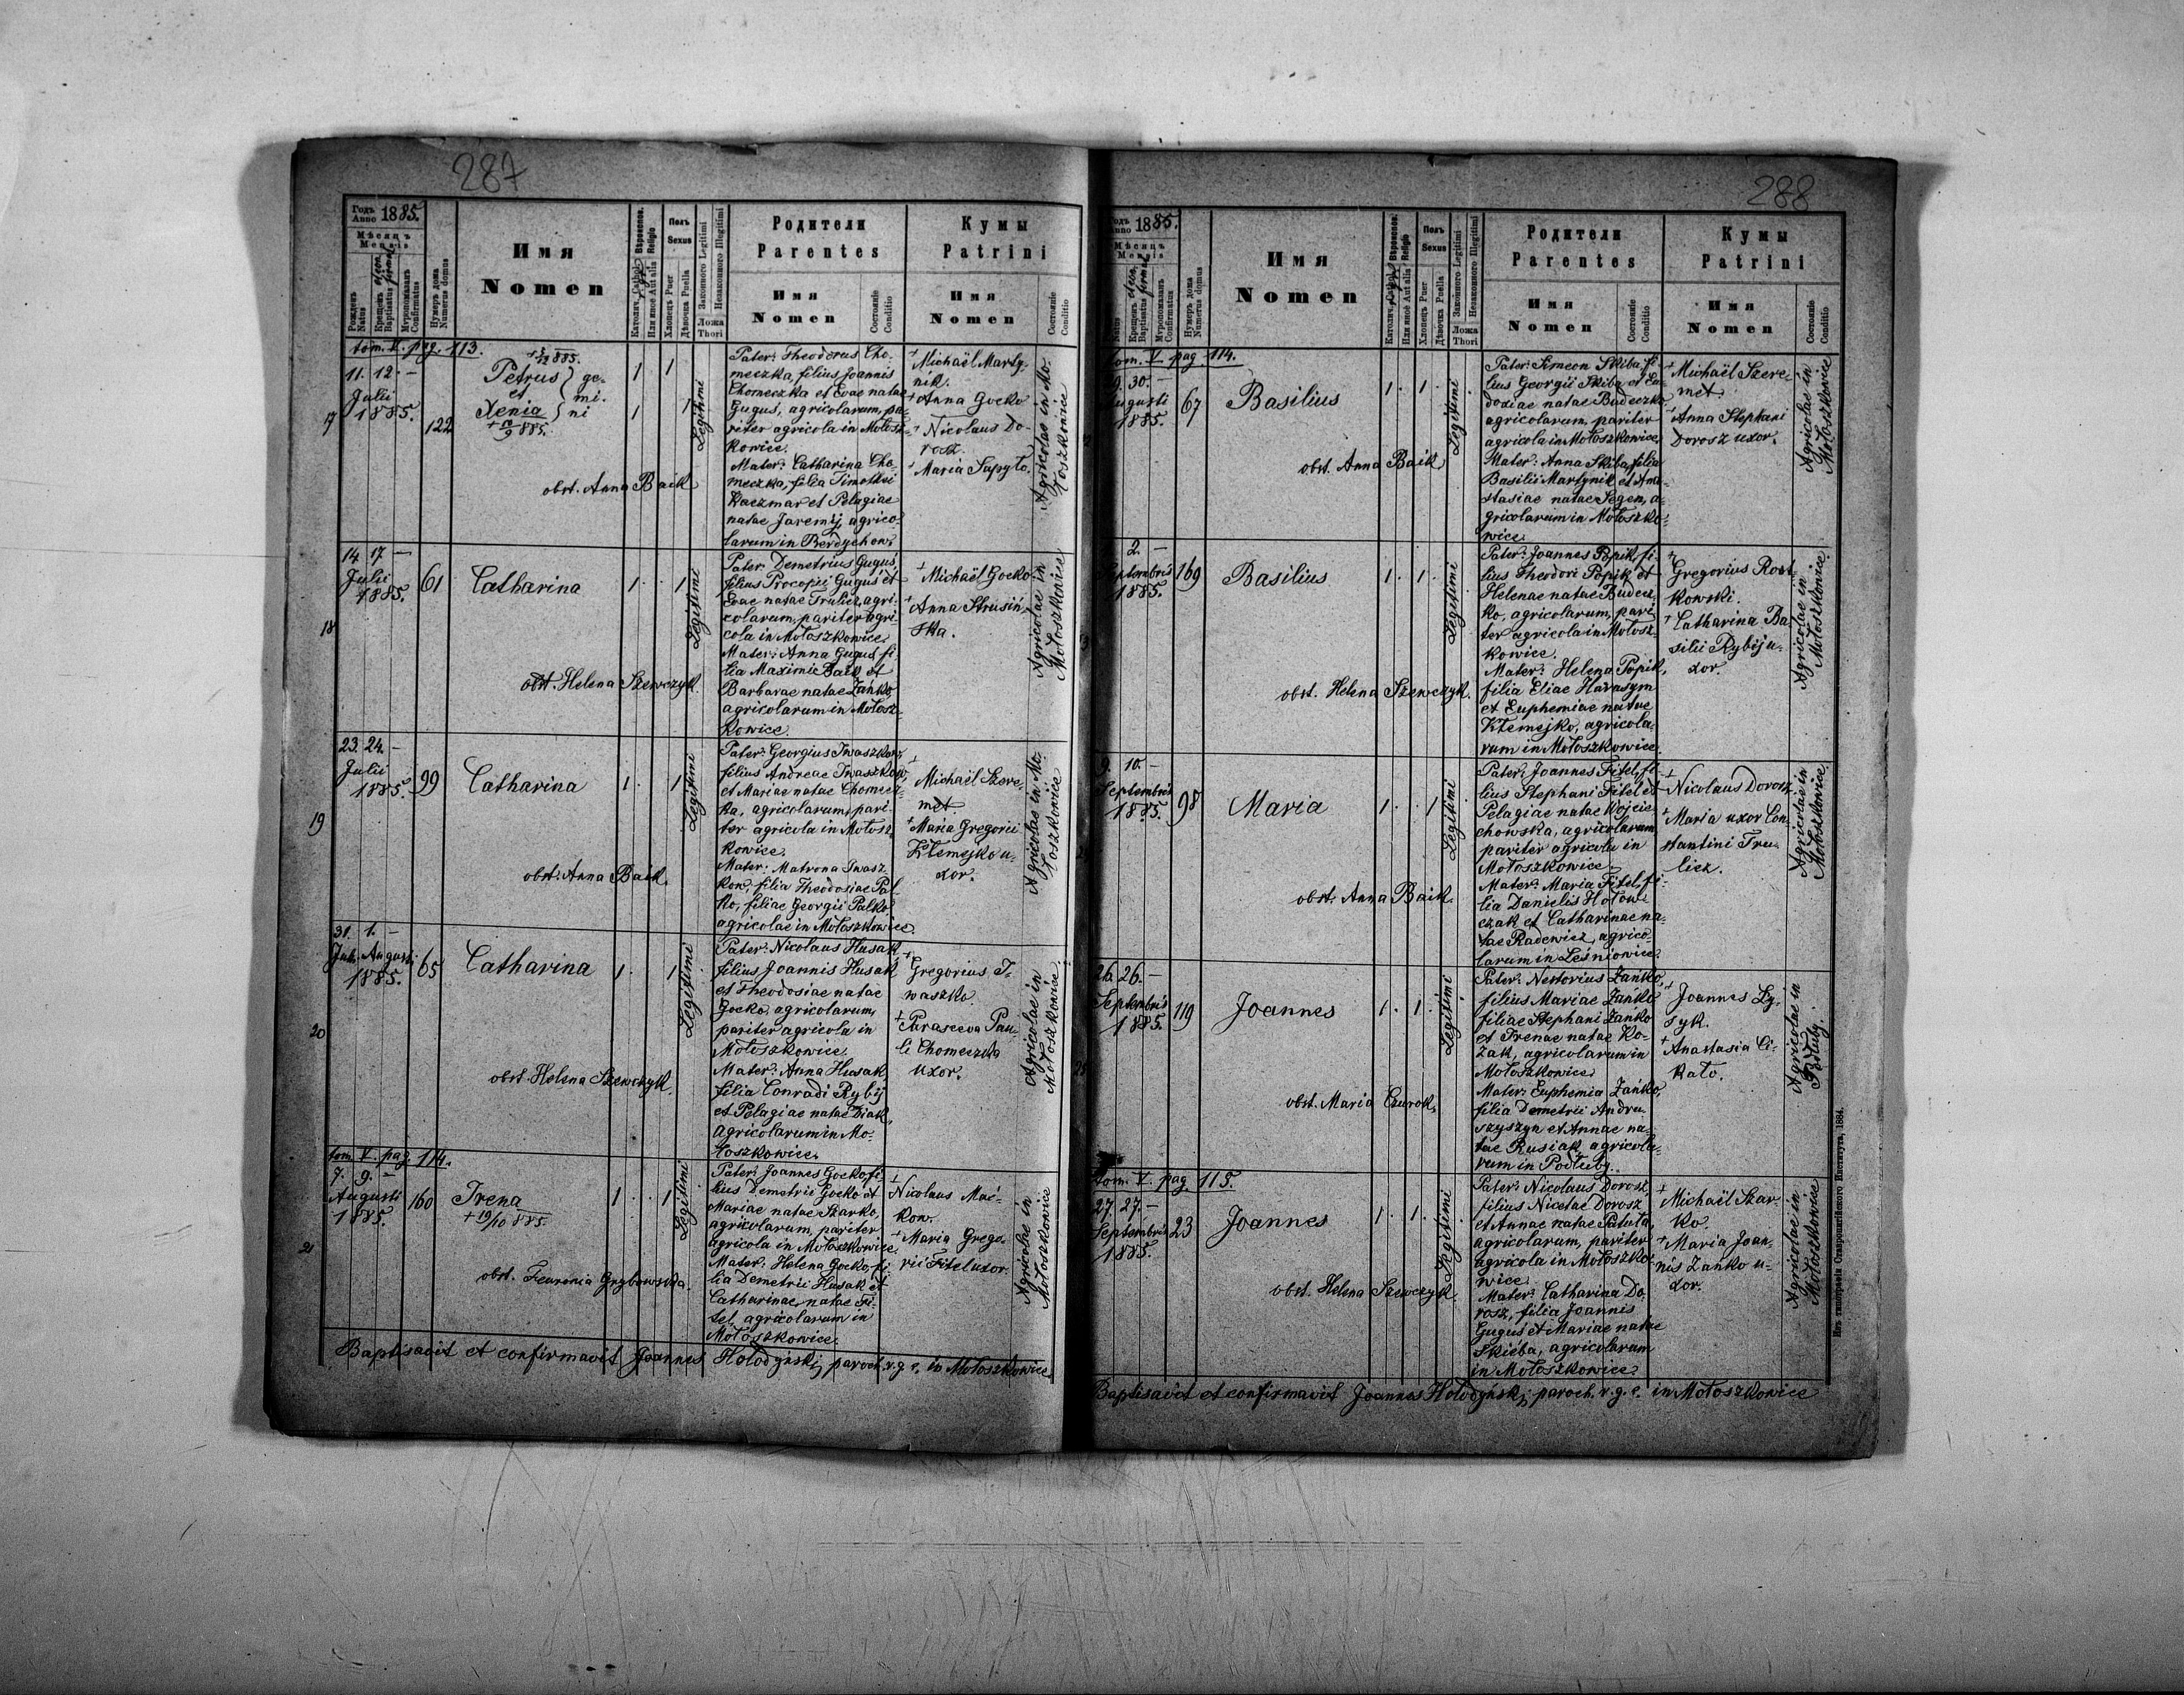 287
Годъ 1885.
Anno
Мѣсяцъ
Mensis
Рожденъ
Natus
Крещенъ et con
Baptisatus firmat
Муропомазанъ
Confirmatus
Нумеръ дома
Numerus domus
Имя
Nomen
Вѣроисп.
Religio
Католич. Cathol.
Или иное Aut alia
Полъ
Sexus
Хлопецъ Puer
Дѣвочка Puella
Законного Legitimi
Незаконного Illegitimi
Ложа
Thori
Родители
Parentes
Имя
Nomen
Состояніе
Conditio
Кумы
Patrini
Имя
Nomen
Состояніе
Conditio
tom. V. pag. 113.
17
11. 12. —
Julii
1885.
122
Petrus } ge-
et mi-
Xenia } ni
obst. Anna Baik
1 1
1 1
Legitimi
Pater: Theodorus Cho-
meczka, filius Joannis
Chomeczka et Evae natae
Guguś, agricolarum, pa-
riter agricola in Mołosz-
kowice.
Mater: Catharina Cho-
meczka, filia Timothei
Kaczmar et Pelagiae
natae Jaremij, agrico-
larum in Berdychow.
+ Michaël Marty-
nik.
+ Anna Gocko
+ Nicolaus Do-
rosz.
+ Maria Sapyto.
Agricolae in Mo-
łoszkowice
18
14. 17. —
Julii
1885.
61
Catharina
obst. Helena Szewczyk.
1. 1
Legitimi
Pater: Demetrius Guguś,
filius Procopii Guguś et
Evae natae Trulicz, agri-
colarum, pariter agri-
cola in Mołoszkowice.
Mater: Anna Guguś, fi-
lia Maximi Baik et
Barbarae natae Zańko
agricolarum in Mołosz-
kowice.
+ Michaël Gocko
+ Anna Strusiń-
ska.
Agricolae in
Mołoszkowice
19
23. 24. —
Julii
1885.
99
Catharina
obst. Anna Baik.
1. 1
Legitimi
Pater: Georgius Iwaszkow,
filius Andreae Iwaszkow,
et Mariae natae Chomecz-
ka, agricolarum, pari-
ter agricola in Mołosz-
kowice.
Mater: Matrona Iwasz-
kow, filia Theodosiae Pal-
ko, filiae Georgii Palko
agricolae in Mołoszkowice.
+ Michaël Szere-
met
+ Maria Gregorii
Kłemejko u-
xor.
Agricolae in Mo-
łoszkowice
20
31. 1. —
Juli. Augusti
1885.
65
Catharina
obst. Helena Szewczyk.
1. 1
Legitimi
Pater: Nicolaus Husak,
filius Joannis Husak
et Theodosiae natae
Gocko, agricolarum,
pariter agricola in
Mołoszkowice.
Mater: Anna Husak
filia Conradi Rybij
et Pelagiae natae Diak,
agricolarum in Mo-
łoszkowice.
+ Gregorius I-
waszko.
+ Parasceva Pau-
li Chomeczka
uxor.
Agricolae in
Mołoszkowice
tom. V. pag. 114.
21
7. 9. —
Augusti
1885.
160
Irena
+ 19/10 885.
1. 1
obst. Fewronia Grybowska.
Legitimi
Pater: Joannes Gocko, fi-
lius Demetrii Gocko et
Mariae natae Szarko,
agricolarum, pariter
agricola in Mołoszkowice.
Mater: Helena Gocko, fi-
lia Demetrii Husak et
Catharinae natae Fi-
tel, agricolarum in
Mołoszkowice.
+ Nicolaus Mać-
kow.
+ Maria Grego-
rii Fitel uxor.
Agricolae in
Mołoszkowice
Baptisavit et confirmavit Joannes Hołodyński, paroch. r. g. c. in Mołoszkowice
288
Годъ 1885.
Anno
Мѣсяцъ
Mensis
Natus
Крещенъ et con
Baptisatus firmat
Муропомазанъ
Confirmatus
Нумеръ дома
Numerus domus
Имя
Nomen
Вѣроисп.
Religio
Католич. Cathol.
Или иное Aut alia
Полъ
Sexus
Хлопецъ Puer
Дѣвочка Puella
Законного Legitimi
Незаконного Illegitimi
Ложа
Thori
Родители
Parentes
Имя
Nomen
Состояніе
Conditio
Кумы
Patrini
Имя
Nomen
Состояніе
Conditio
tom. V. pag. 114.
30. —
Augusti
1885.
67
Basilius
obst. Anna Baik
1. 1.
Legitimi
Pater: Simeon Skiba, fi-
lius Georgii Skiba et Eu-
doxiae natae Budeczka
agricolarum, pariter
agricola in Mołoszkowice.
Mater: Anna Skiba, filia
Basilii Martynik et Ana-
stasiae natae Segen, a-
gricolarum in Mołoszko-
wice.
+ Michaël Szere-
met.
+ Anna Stephani
Dorosz uxor.
Agricolae in
Mołoszkowice
2. —
Septembris
1885.
169
Basilius
obst. Helena Szewczyk.
1. 1.
Legitimi
Pater: Joannes Popik, fi-
lius Theodori Popik et
Helenae natae Budecz-
ko, agricolarum, pari-
ter agricola in Mołosz-
kowice.
Mater: Helena Popik,
filia Eliae Harasym
et Euphemiae natae
Kłemejko, agricola-
rum in Mołoszkowice.
+ Gregorius Rost-
kowski.
+ Catharina Ba-
silii Rybij u-
xor.
Agricolae in
Mołoszkowice
9. 10. —
Septembris
1885.
98
Maria
obst. Anna Baik.
1. 1
Legitimi
Pater: Joannes Fitel, fi-
lius Stephani Fitel et
Pelagiae natae Wojcie-
chowska, agricolarum
pariter agricola in
Mołoszkowice.
Mater: Maria Fitel, fi-
lia Danielis Hołow-
czak et Catharinae na-
tae Radewicz, agrico-
larum in Leśniowice.
+ Nicolaus Dorosz
+ Maria uxor Con-
stantini Tru-
licz.
Agricolae in
Mołoszkowice
26. 26. —
Septembris
1885.
119
Joannes
obst. Maria Czurok.
1. 1.
Legitimi
Pater: Nestorius Zańko,
filius Mariae Zańko
filiae Stephani Zańko
et Irenae natae Ko-
zak, agricolarum in
Mołoszkowice.
Mater: Euphemia Zańko,
filia Demetrii Andru-
szyszyn et Annae na-
tae Rusiak, agricola-
rum in Podłuby.
+ Joannes Ły-
syk.
+ Anastasia Ci-
kało.
Agricolae in
Podłuby.
tom. V. pag. 115.
27. 27. —
Septembris
1885.
23
Joannes
obst. Helena Szewczyk.
1. 1.
Legitimi
Pater: Nicolaus Dorosz,
filius Nicetae Dorosz
et Annae natae Patuta,
agricolarum, pariter
agricola in Mołoszko-
wice.
Mater: Catharina Do-
rosz, filia Joannis
Guguś et Mariae natae
Skieba, agricolarum
in Mołoszkowice.
+ Michaël Szar-
ko.
+ Maria Joan-
nis Zańko u-
xor.
Agricolae in
Mołoszkowice
Baptisavit et confirmavit Joannes Hołodyński, paroch. r. g. c. in Mołoszkowice
Изъ типографіи Ставропигійского Института, 1884.